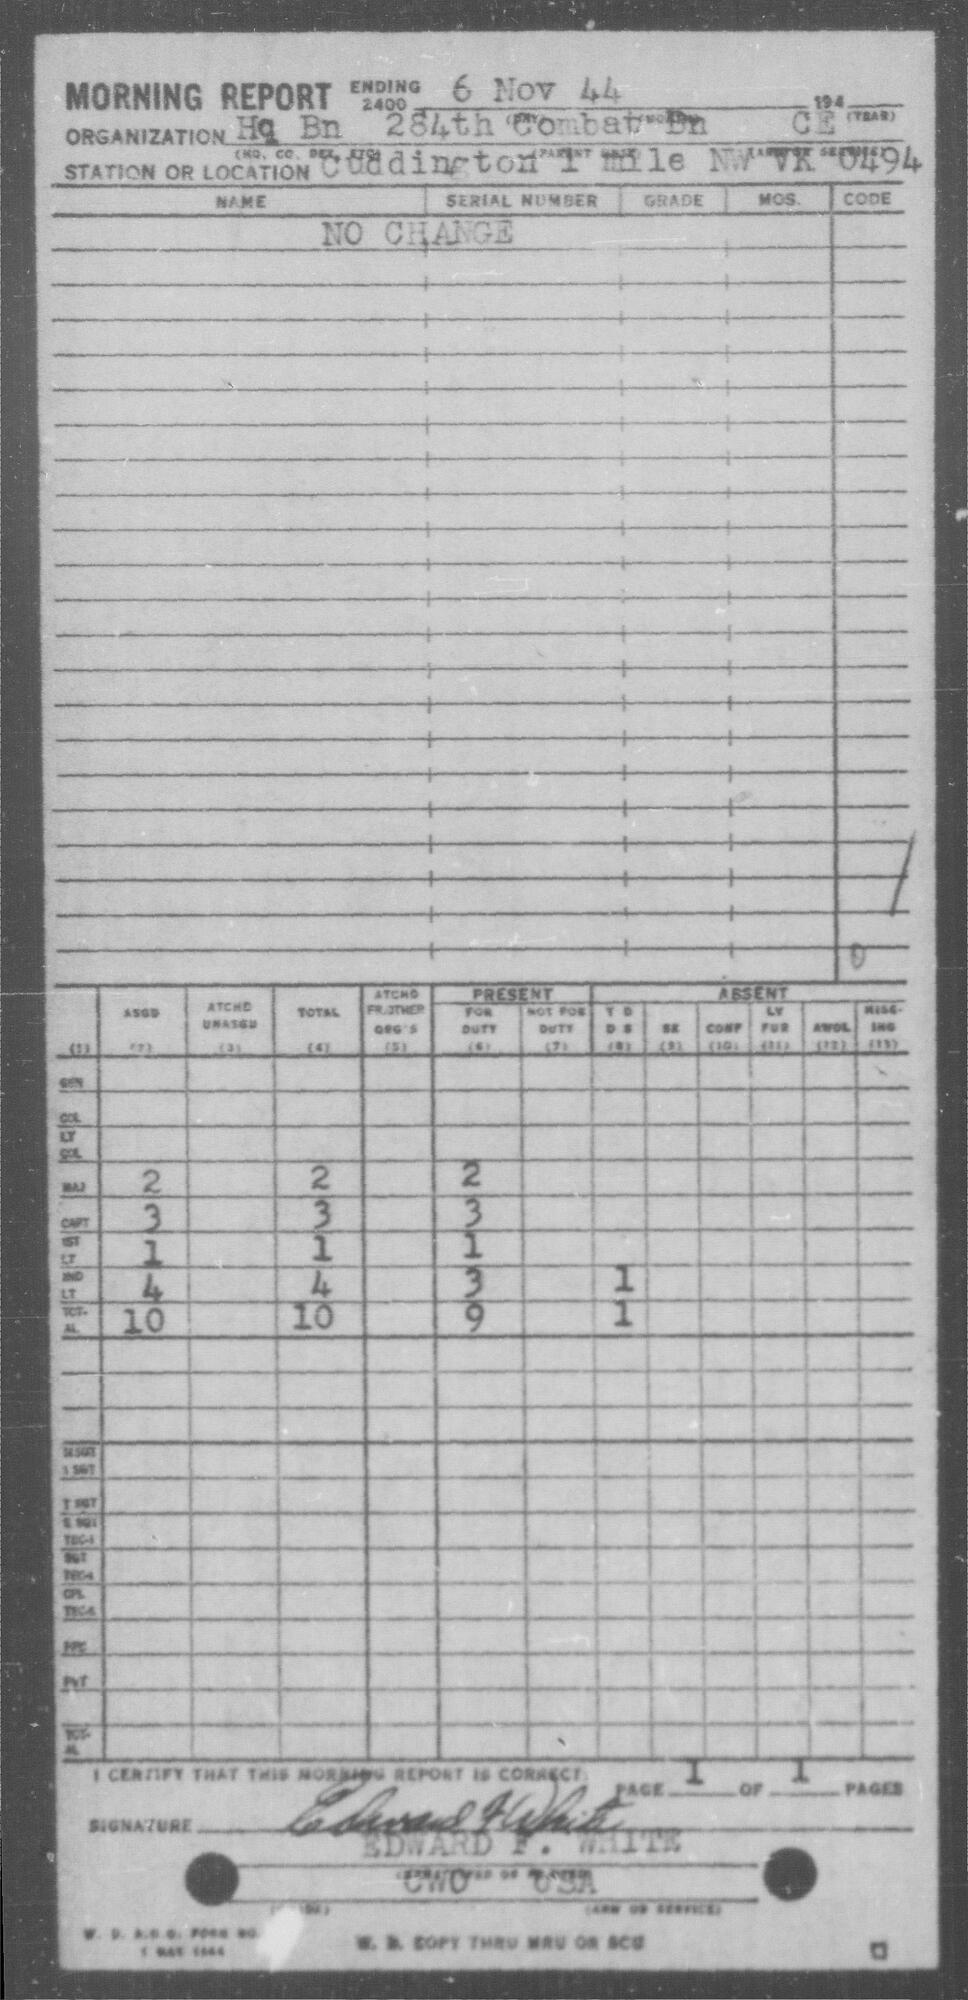 MORNING REPORT ENDING 2400 6 Nov 44 194
ORGANIZATION Hq Bn 284th Combat Bn CE (YEAR)
STATION OR LOCATION Cuddington 1 mile NW VK 0494
NAME SERIAL NUMBER GRADE MOS. CODE
NO CHANGE
0
PRESENT ABSENT
ASGD ATCHD UNASGD TOTAL ATCHD FR OTHER ORG'S FOR DUTY NOT FOR DUTY T D D S SK CONF LV FUR AWOL MISSING
(1) (2) (3) (4) (5) (6) (7) (8) (9) (10) (11) (12) (13)
GEN
COL
LT COL
MAJ 2 2 2
CAPT 3 3 3
1ST LT 1 1 1
2ND LT 4 4 3 1
TOT-AL 10 10 9 1
M SGT
1 SGT
T SGT
S SGT
TEC-3
SGT
TEC-4
CPL
TEC-5
PFC
PVT
TOT-AL
I CERTIFY THAT THIS MORNING REPORT IS CORRECT.
PAGE 1 OF 1 PAGES
SIGNATURE Edward F White
EDWARD F. WHITE
CWO USA
(ARM OR SERVICE)
W. D. A.G.O. FORM NO.
W. D. COPY THRU MRU OR SCU